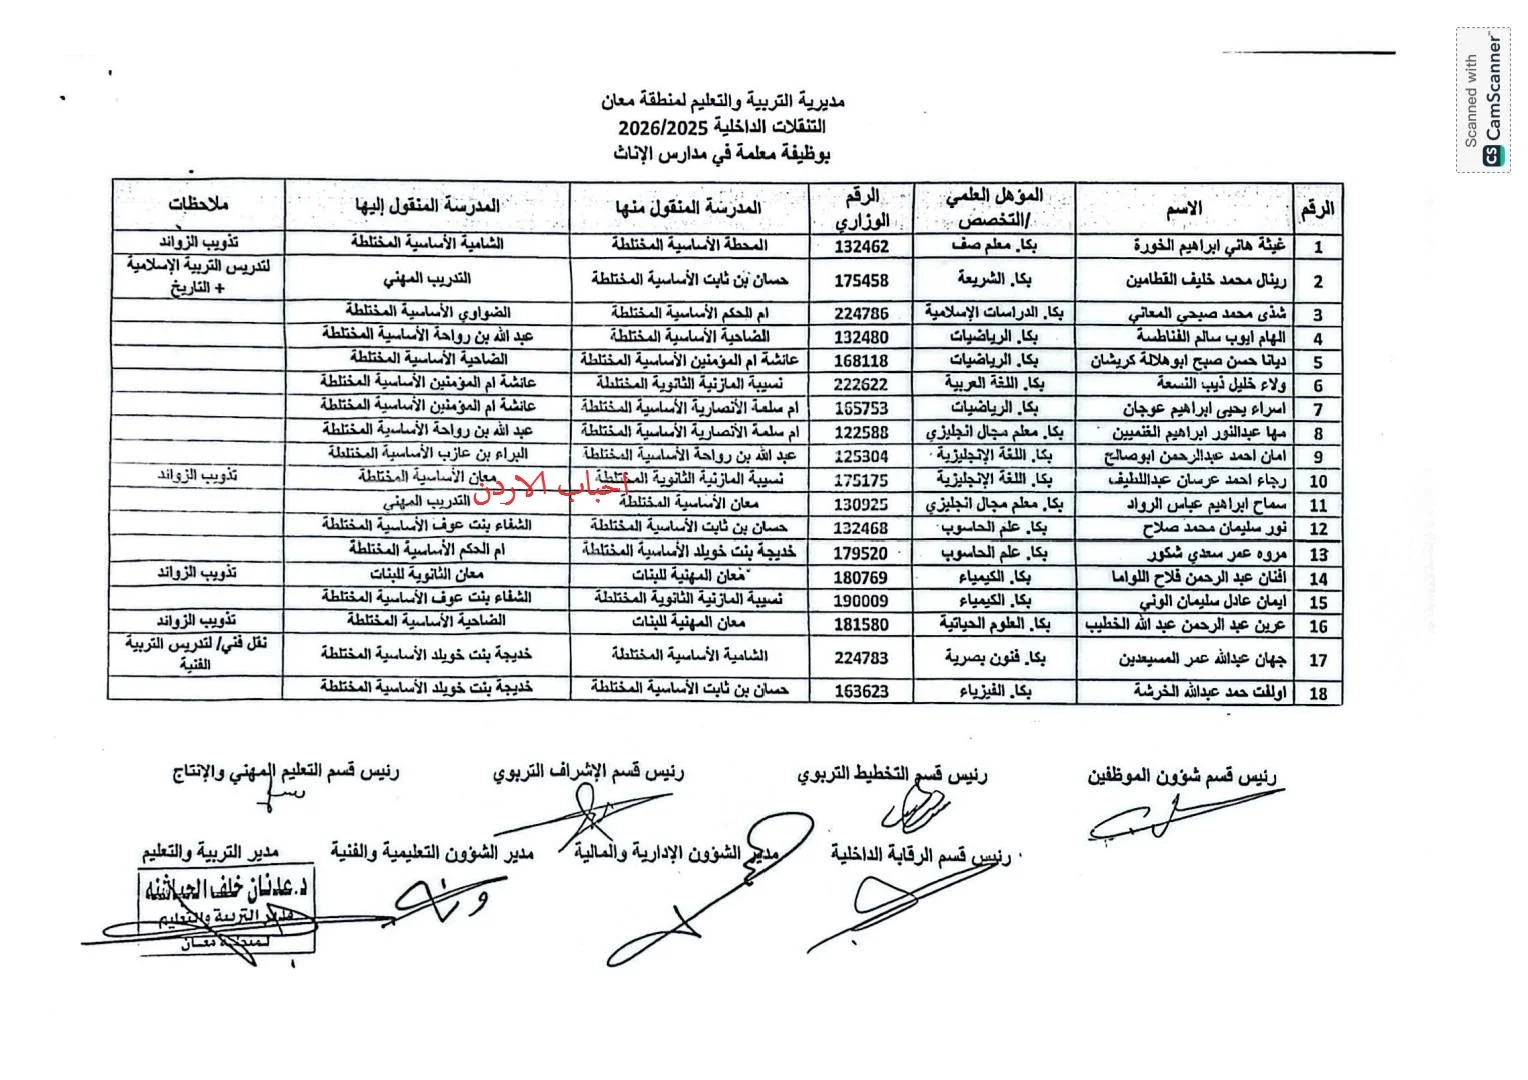 Scanned with
CS CamScanner
مديرية التربية والتعليم لمنطقة معان
التنقلات الداخلية 2026/2025
بوظيفة معلمة في مدارس الإناث
الرقم الاسم المؤهل العلمي /التخصص الرقم الوزاري المدرسة المنقول منها المدرسة المنقول إليها ملاحظات
1 غيثة هاني ابراهيم الخورة بكا. معلم صف 132462 المحطة الأساسية المختلطة الشامية الأساسية المختلطة تذويب الزوائد
2 رينال محمد خليف القطامين بكا. الشريعة 175458 حسان بن ثابت الأساسية المختلطة التدريب المهني لتدريس التربية الإسلامية + التاريخ
3 شذى محمد صبحي المعاني بكا. الدراسات الإسلامية 224786 ام الحكم الأساسية المختلطة الضواوي الأساسية المختلطة
4 الهام ايوب سالم الفناطسة بكا. الرياضيات 132480 الضاحية الأساسية المختلطة عبد الله بن رواحة الأساسية المختلطة
5 ديانا حسن صبح ابوهلالة كريشان بكا. الرياضيات 168118 عائشة ام المؤمنين الأساسية المختلطة الضاحية الأساسية المختلطة
6 ولاء خليل ذيب النسعة بكا. اللغة العربية 222622 نسيبة المازنية الثانوية المختلطة عائشة ام المؤمنين الأساسية المختلطة
7 اسراء يحيى ابراهيم عوجان بكا. الرياضيات 165753 ام سلمة الأنصارية الأساسية المختلطة عائشة ام المؤمنين الأساسية المختلطة
8 مها عبدالنور ابراهيم الغنميين بكا. معلم مجال انجليزي 122588 ام سلمة الأنصارية الأساسية المختلطة عبد الله بن رواحة الأساسية المختلطة
9 امان احمد عبدالرحمن ابوصالح بكا. اللغة الإنجليزية 125304 عبد الله بن رواحة الأساسية المختلطة البراء بن عازب الأساسية المختلطة
10 رجاء احمد عرسان عبداللطيف بكا. اللغة الإنجليزية 175175 نسيبة المازنية الثانوية المختلطة معان الأساسية المختلطة تذويب الزوائد
احباب الاردن
11 سماح ابراهيم عباس الرواد بكا. معلم مجال انجليزي 130925 معان الأساسية المختلطة التدريب المهني
12 نور سليمان محمد صلاح بكا. علم الحاسوب 132468 حسان بن ثابت الأساسية المختلطة الشفاء بنت عوف الأساسية المختلطة
13 مروه عمر سعدي شكور بكا. علم الحاسوب 179520 خديجة بنت خويلد الأساسية المختلطة ام الحكم الأساسية المختلطة
14 افنان عبد الرحمن فلاح اللواما بكا. الكيمياء 180769 معان المهنية للبنات معان الثانوية للبنات تذويب الزوائد
15 ايمان عادل سليمان الوني بكا. الكيمياء 190009 نسيبة المازنية الثانوية المختلطة الشفاء بنت عوف الأساسية المختلطة
16 عرين عبد الرحمن عبد الله الخطيب بكا. العلوم الحياتية 181580 معان المهنية للبنات الضاحية الأساسية المختلطة تذويب الزوائد
17 جهان عبدالله عمر المسيعدين بكا. فنون بصرية 224783 الشامية الأساسية المختلطة خديجة بنت خويلد الأساسية المختلطة نقل فني/ لتدريس التربية الفنية
18 اولفت حمد عبدالله الخرشة بكا. الفيزياء 163623 حسان بن ثابت الأساسية المختلطة خديجة بنت خويلد الأساسية المختلطة
رئيس قسم شؤون الموظفين رئيس قسم التخطيط التربوي رئيس قسم الإشراف التربوي رئيس قسم التعليم المهني والإنتاج
رئيس قسم الرقابة الداخلية مدير الشؤون الإدارية والمالية مدير الشؤون التعليمية والفنية مدير التربية والتعليم
د. عدنان خلف الحباشنه
مدير التربية والتعليم
لمنطقة معان